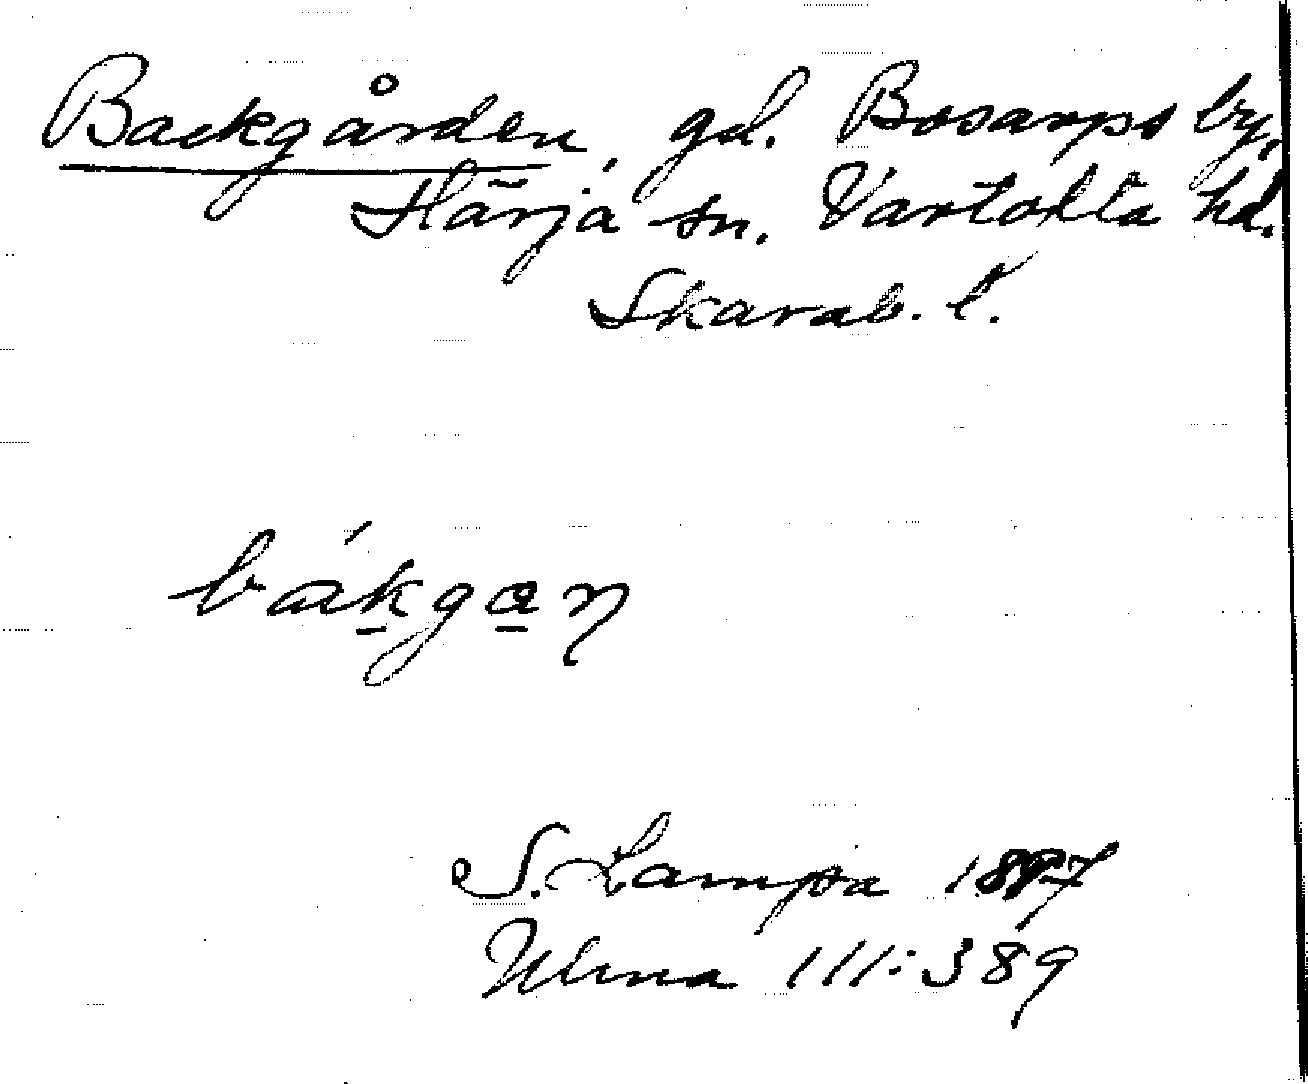 Backgården, gd. Bosarps by,
Härja sn. Vartofta hd.
Skarab. l.
bákgan
S. Lampa 1897
111:389